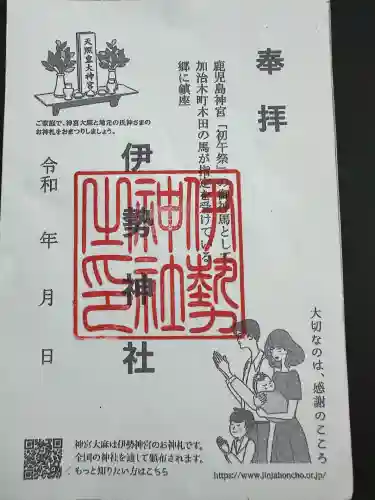 奉拝
鹿児島神宮「初午祭」の御神馬として
加治木町木田の馬が指定を受けている
郷に鎮座
伊勢神社
伊勢
神社
之印
天照皇大神宮
ご家庭で、神宮大麻と地元の氏神さまの
お神札をおまつりしましょう。
令和 年 月 日
大切なのは、感謝のこころ
神宮大麻は伊勢神宮のお神札です。
全国の神社を通して頒布されます。
もっと知りたい方はこちら
https://www.jinjahoncho.or.jp/